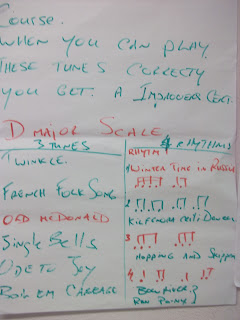 Course.
WHEN YOU CAN PLAY
THESE TUNES CORRECTY
YOU GET. A IMPROVERS CERT.
D MAJOR SCALE
3 TUNES
TWINKLE.
FRENCH FOLK SONG
OLD MCDONALD
SINGLE BELLS
ODE TO JOY
BOIL EM CABBAGE
4 RHYTHMS
RHYTM
1 WINTER TIME IN RUSSIA
2
KILFENORA CEILI DANCER
3
HOPPING AND SKIPPING
4